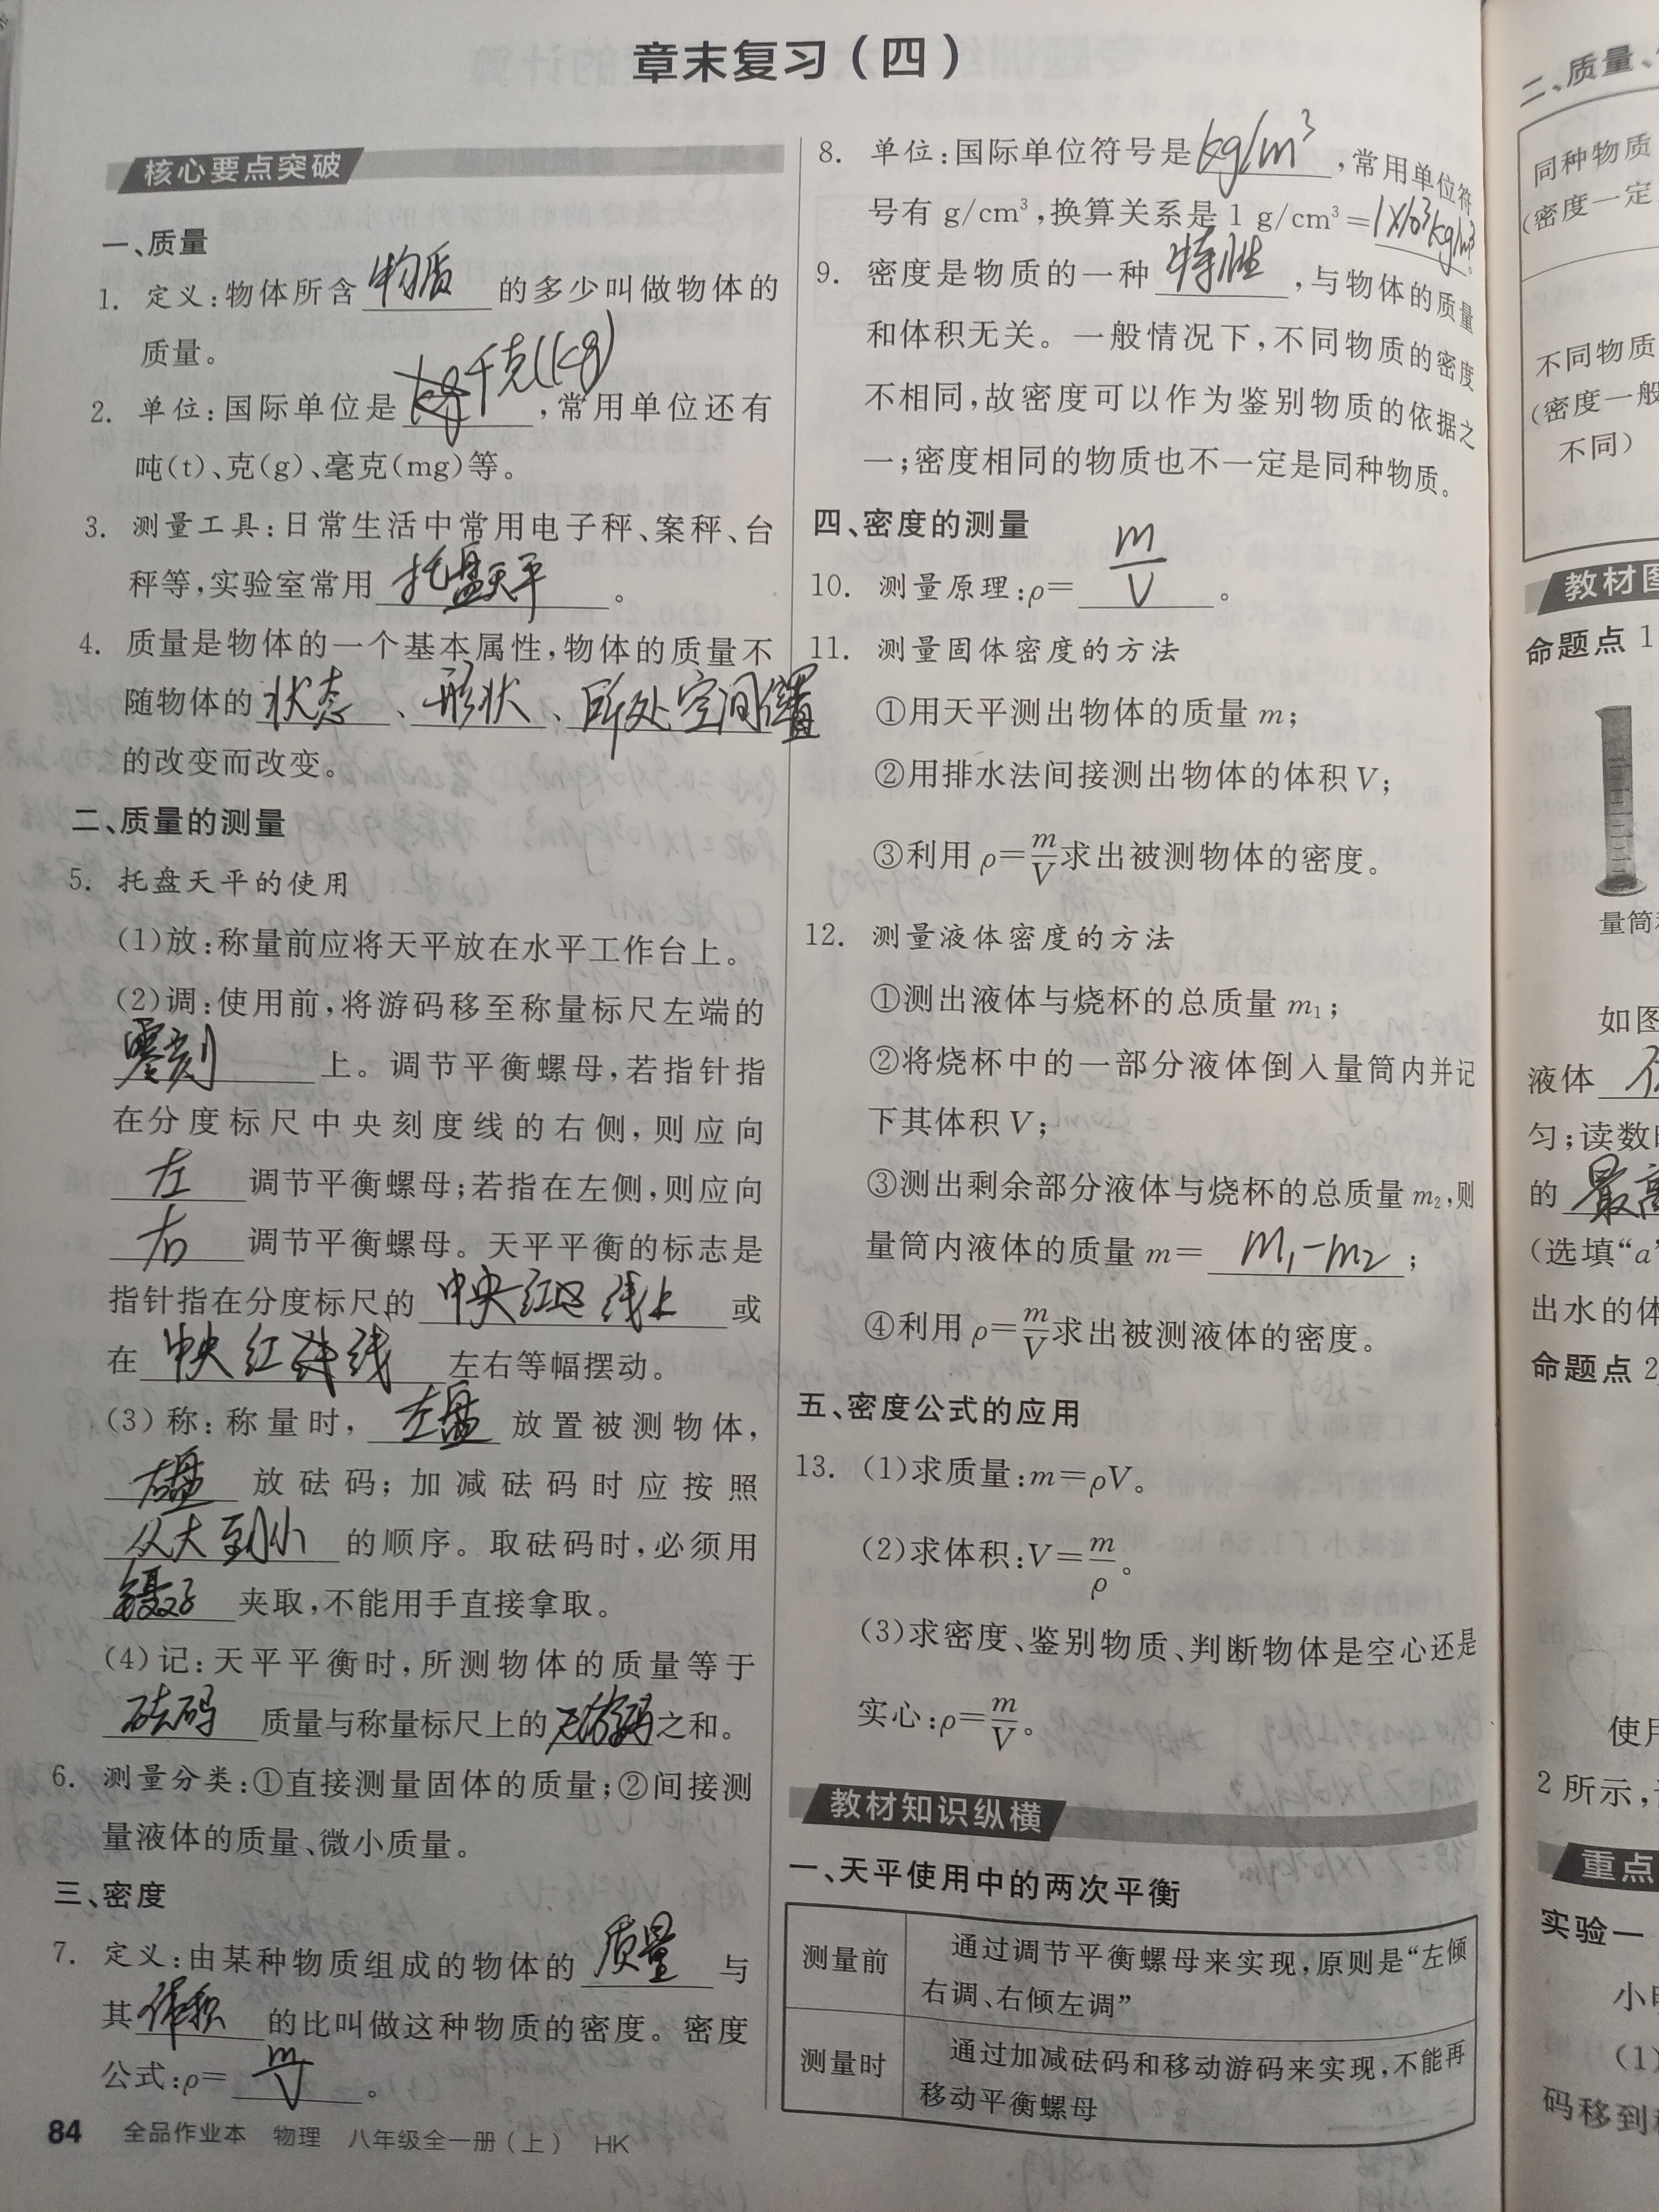 章末复习(四)
核心要点突破
一、质量
1. 定义:物体所含 物质 的多少叫做物体的
质量。
2. 单位:国际单位是 kg千克(kg) ,常用单位还有
吨(t)、克(g)、毫克(mg)等。
3. 测量工具:日常生活中常用电子秤、案秤、台
秤等,实验室常用 托盘天平 。
4. 质量是物体的一个基本属性,物体的质量不
随物体的 状态 、 形状 、 所处空间位置
的改变而改变。
二、质量的测量
5. 托盘天平的使用
(1)放:称量前应将天平放在水平工作台上。
(2)调:使用前,将游码移至称量标尺左端的
零刻 上。调节平衡螺母,若指针指
在分度标尺中央刻度线的右侧,则应向
左 调节平衡螺母;若指在左侧,则应向
右 调节平衡螺母。天平平衡的标志是
指针指在分度标尺的 中央红 线上 或
在 中央红 线 左右等幅摆动。
(3)称:称量时, 左盘 放置被测物体,
右盘 放砝码;加减砝码时应按照
从大到小 的顺序。取砝码时,必须用
镊子 夹取,不能用手直接拿取。
(4)记:天平平衡时,所测物体的质量等于
砝码 质量与称量标尺上的 之和。
6. 测量分类:①直接测量固体的质量;②间接测
量液体的质量、微小质量。
三、密度
7. 定义:由某种物质组成的物体的 质量 与
其 体积 的比叫做这种物质的密度。密度
公式:ρ= m/V 。
84 全品作业本 物理 八年级全一册(上) HK
8. 单位:国际单位符号是 kg/m³ ,常用单位符
号有 g/cm³,换算关系是 1 g/cm³= 1×10³kg/m³。
9. 密度是物质的一种 特性 ,与物体的质量
和体积无关。一般情况下,不同物质的密度
不相同,故密度可以作为鉴别物质的依据之
一;密度相同的物质也不一定是同种物质。
四、密度的测量
10. 测量原理:ρ= m/V 。
11. 测量固体密度的方法
①用天平测出物体的质量 m;
②用排水法间接测出物体的体积 V;
③利用 ρ=m/V求出被测物体的密度。
12. 测量液体密度的方法
①测出液体与烧杯的总质量 m₁;
②将烧杯中的一部分液体倒入量筒内并记
下其体积 V;
③测出剩余部分液体与烧杯的总质量 m₂,则
量筒内液体的质量 m= m₁-m₂ ;
④利用 ρ=m/V求出被测液体的密度。
五、密度公式的应用
13. (1)求质量:m=ρV。
(2)求体积:V=m/ρ。
(3)求密度、鉴别物质、判断物体是空心还是
实心:ρ=m/V。
教材知识纵横
一、天平使用中的两次平衡
测量前
通过调节平衡螺母来实现,原则是“左倾
右调、右倾左调”
测量时
通过加减砝码和移动游码来实现,不能再
移动平衡螺母
二、质量、
同种物质
(密度一定
不同物质
(密度一般
不同)
教材
命题点 1
量筒
如图
液体
匀;读数
的 最高
(选填“a”
出水的体
命题点 2
使用
2 所示,
重点
实验一
小
(1)
码移到